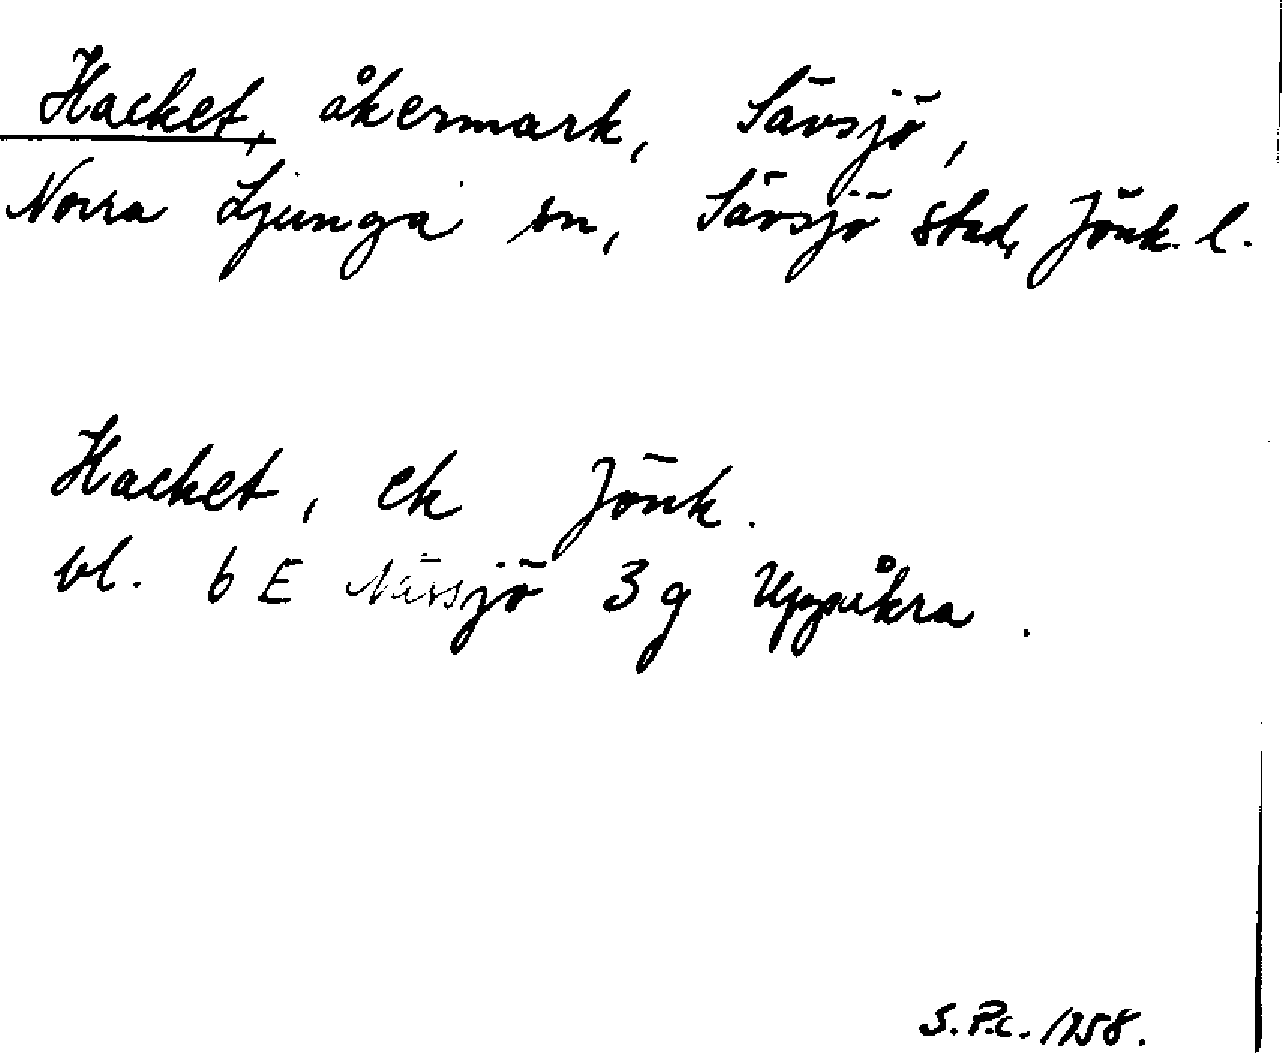 Hacket, åkermark, Sävsjö,
Norra Ljunga sn, Sävsjö stad, Jönk. l.
Hacket, ek Jönk.
bl. 6 E Nässjö 3 g Uppåkra.
S.P.c. 1958.